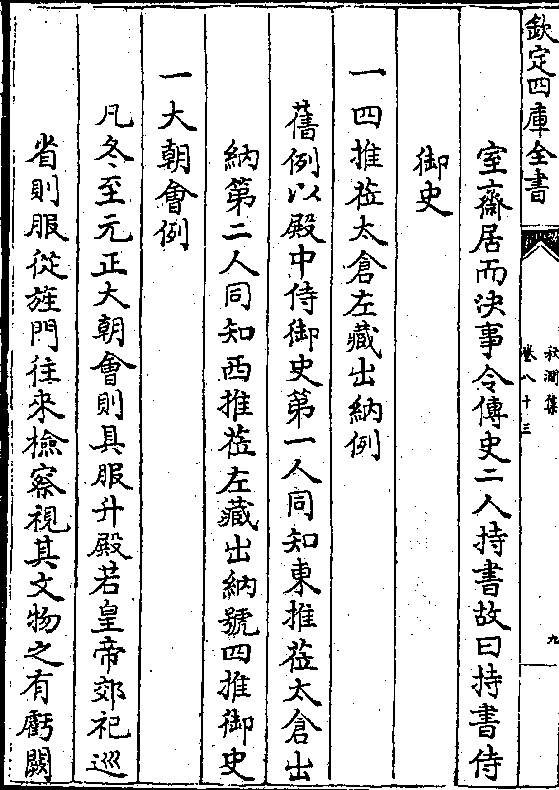 欽定四庫全書
秋澗集
卷八十三
九
室齋居而決事令傳史二人持書故曰持書侍
御史
一四推莅太倉左藏出納例
舊例以殿中侍御史第一人同知東推莅太倉出
納第二人同知西推莅左藏出納號四推御史
一大朝會例
凡冬至元正大朝會則具服升殿若皇帝郊祀巡
省則服從旌門往來檢察視其文物之有虧闕